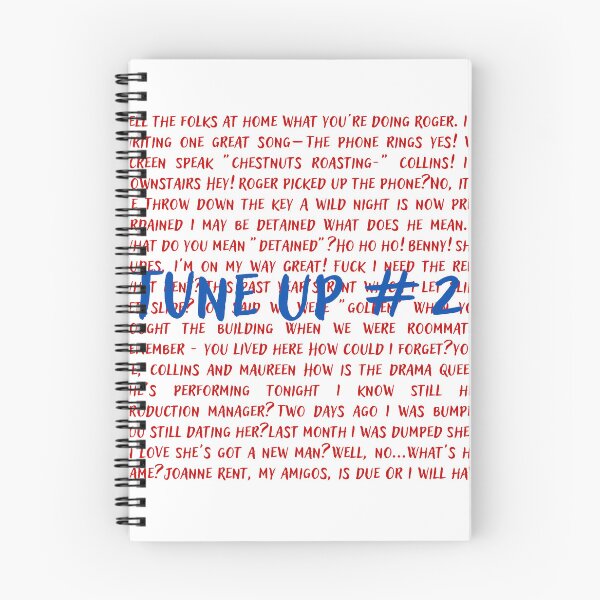 ELL THE FOLKS AT HOME WHAT YOU'RE DOING ROGER. I
RITING ONE GREAT SONG—THE PHONE RINGS YES! W
CREEN SPEAK "CHESTNUTS ROASTING-" COLLINS! I
OWNSTAIRS HEY! ROGER PICKED UP THE PHONE?NO, IT
E THROW DOWN THE KEY A WILD NIGHT IS NOW PRE
RDAINED I MAY BE DETAINED WHAT DOES HE MEAN.
HAT DO YOU MEAN "DETAINED"?HO HO HO! BENNY! SH
UDES, I'M ON MY WAY GREAT! FUCK I NEED THE REN
THIS PAST YEAR'S RENT LET
TUNE UP #2
SAID WE WERE "GOLDEN" WHEN YO
UGHT THE BUILDING WHEN WE WERE ROOMMAT
EMEMBER - YOU LIVED HERE HOW COULD I FORGET?YO
E, COLLINS AND MAUREEN HOW IS THE DRAMA QUEE
HE'S PERFORMING TONIGHT I KNOW STILL HE
RODUCTION MANAGER? TWO DAYS AGO I WAS BUMPE
OU STILL DATING HER?LAST MONTH I WAS DUMPED SHE
I LOVE SHE'S GOT A NEW MAN?WELL, NO...WHAT'S H
AME?JOANNE RENT, MY AMIGOS, IS DUE OR I WILL HAV